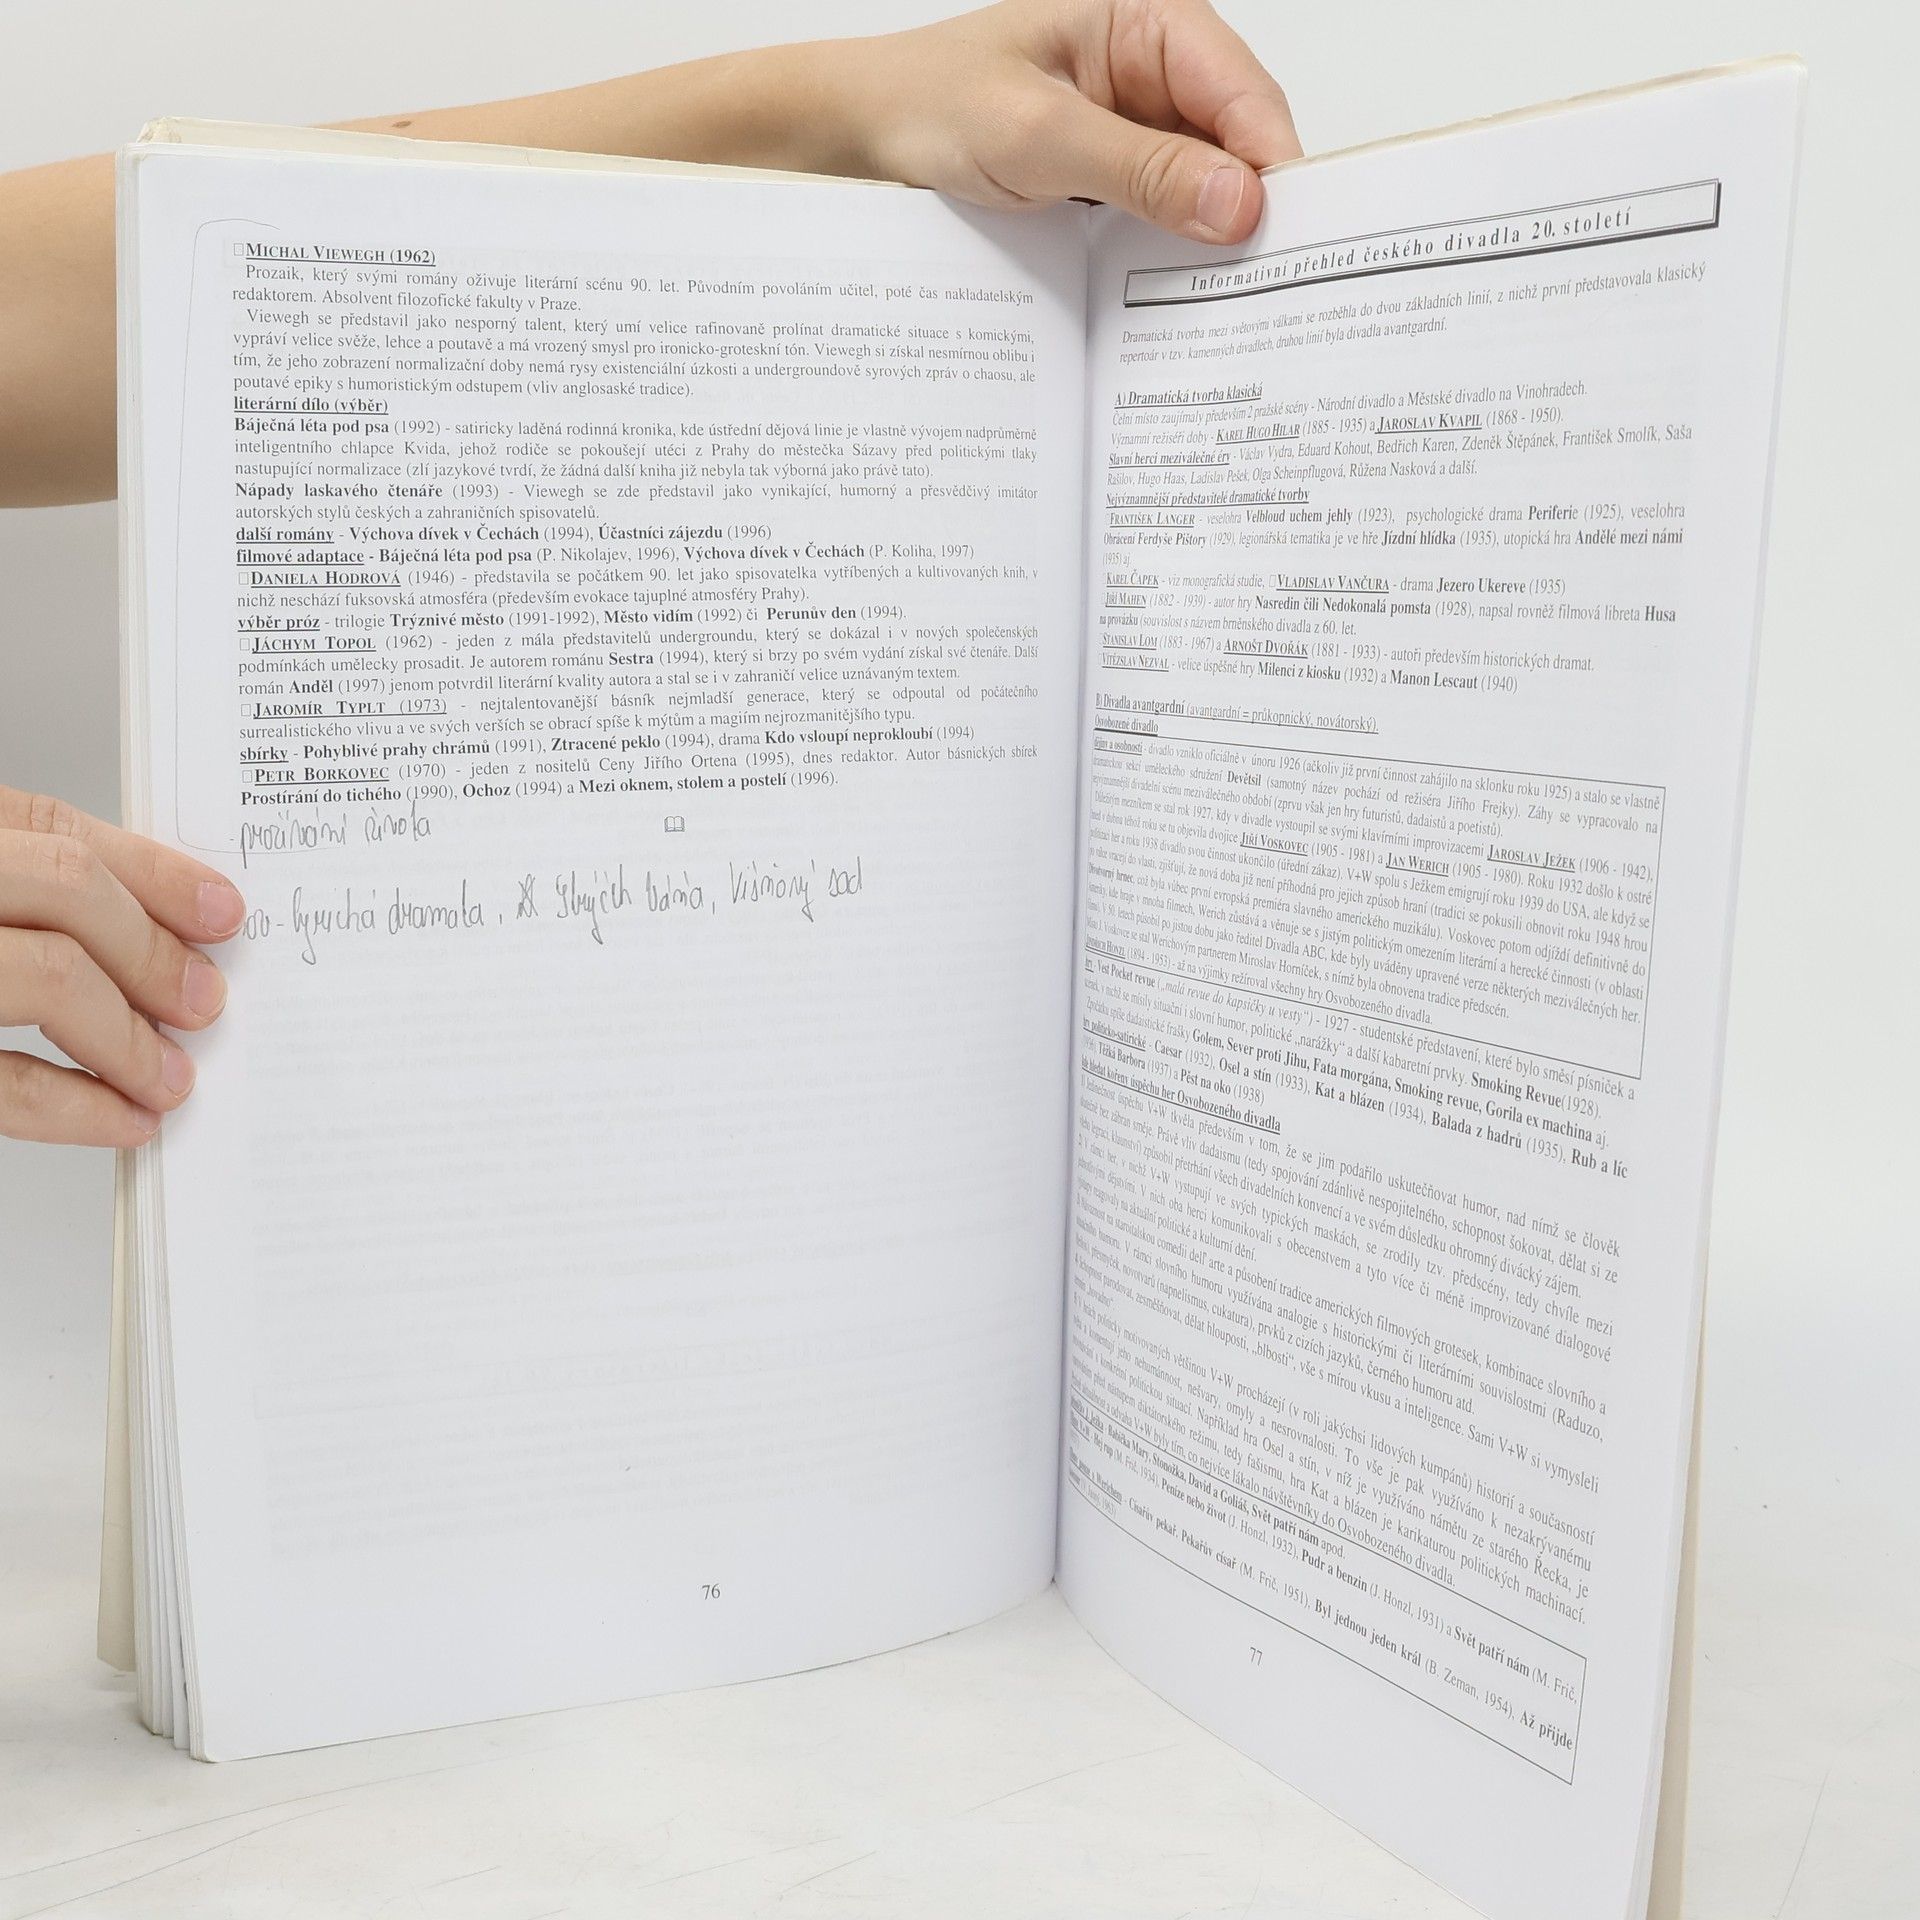 MICHAL VIEWEGH (1962)
Prozaik, který svými romány oživuje literární scénu 90. let. Původním povoláním učitel, poté čas nakladatelským
redaktorem. Absolvent filozofické fakulty v Praze.
Viewegh se představil jako nesporný talent, který umí velice rafinovaně prolínat dramatické situace s komickými,
vypráví velice svěže, lehce a poutavě a má vrozený smysl pro ironicko-groteskní tón. Viewegh si získal nesmírnou oblibu i
tím, že jeho zobrazení normalizační doby nemá rysy existenciální úzkosti a undergroundově syrových zpráv o chaosu, ale
poutavé epiky s humoristickým odstupem (vliv anglosaské tradice).
literární dílo (výběr)
Báječná léta pod psa (1992) - satiricky laděná rodinná kronika, kde ústřední dějová linie je vlastně vývojem nadprůměrně
inteligentního chlapce Kvida, jehož rodiče se pokoušejí utéci z Prahy do městečka Sázavy před politickými tlaky
nastupující normalizace (zlí jazykové tvrdí, že žádná další kniha již nebyla tak výborná jako právě tato).
Nápady laskavého čtenáře (1993) - Viewegh se zde představil jako vynikající, humorný a přesvědčivý imitátor
autorských stylů českých a zahraničních spisovatelů.
další romány - Výchova dívek v Čechách (1994), Účastníci zájezdu (1996)
filmové adaptace - Báječná léta pod psa (P. Nikolajev, 1996), Výchova dívek v Čechách (P. Koliha, 1997)
DANIELA HODROVÁ (1946) - představila se počátkem 90. let jako spisovatelka vytříbených a kultivovaných knih, v
nichž neschází fuksovská atmosféra (především evokace tajuplné atmosféry Prahy).
výběr próz - trilogie Trýznivé město (1991-1992), Město vidím (1992) či Perunův den (1994).
JÁCHYM TOPOL (1962) - jeden z mála představitelů undergroundu, který se dokázal i v nových společenských
podmínkách umělecky prosadit. Je autorem románu Sestra (1994), který si brzy po svém vydání získal své čtenáře. Další
román Anděl (1997) jenom potvrdil literární kvality autora a stal se i v zahraničí velice uznávaným textem.
JAROMÍR TYPLT (1973) - nejtalentovanější básník nejmladší generace, který se odpoutal od počátečního
surrealistického vlivu a ve svých verších se obrací spíše k mýtům a magiím nejrozmanitějšího typu.
sbírky - Pohyblivé prahy chrámů (1991), Ztracené peklo (1994), drama Kdo vsloupí neprokloubí (1994)
PETR BORKOVEC (1970) - jeden z nositelů Ceny Jiřího Ortena (1995), dnes redaktor. Autor básnických sbírek
Prostírání do tichého (1990), Ochoz (1994) a Mezi oknem, stolem a postelí (1996).
- prožívání života
- lyrická dramata, Strýček Váňa, Višňový sad
76
Informativní přehled českého divadla 20. století
Dramatická tvorba mezi světovými válkami se rozběhla do dvou základních linií, z nichž první představovala klasický
repertoár v tzv. kamenných divadlech, druhou linií byla divadla avantgardní.
A) Dramatická tvorba klasická
Čelní místo zaujímaly především 2 pražské scény - Národní divadlo a Městské divadlo na Vinohradech.
Významní režiséři doby - KAREL HUGO HILAR (1885 - 1935) a JAROSLAV KVAPIL (1868 - 1950).
Slavní herci meziválečné éry - Václav Vydra, Eduard Kohout, Bedřich Karen, Zdeněk Štěpánek, František Smolík, Saša
Rašilov, Hugo Haas, Ladislav Pešek, Olga Scheinpflugová, Růžena Nasková a další.
Nejvýznamnější představitelé dramatické tvorby
FRANTIŠEK LANGER - veselohra Velbloud uchem jehly (1923), psychologické drama Periferie (1925), veselohra
Obrácení Ferdyše Pištory (1929), legionářská tematika je ve hře Jízdní hlídka (1935), utopická hra Andělé mezi námi
(1935) aj.
KAREL ČAPEK - viz monografická studie, VLADISLAV VANČURA - drama Jezero Ukereve (1935)
JIŘÍ MAHEN (1882 - 1939) - autor hry Nasredin čili Nedokonalá pomsta (1928), napsal rovněž filmová libreta Husa
na provázku (souvislost s názvem brněnského divadla z 60. let.
STANISLAV LOM (1883 - 1967) a ARNOŠT DVOŘÁK (1881 - 1933) - autoři především historických dramat.
VÍTĚZSLAV NEZVAL - velice úspěšné hry Milenci z kiosku (1932) a Manon Lescaut (1940)
B) Divadla avantgardní (avantgardní = průkopnický, novátorský).
Osvobozené divadlo
dějiny a osobnosti - divadlo vzniklo oficiálně v únoru 1926 (ačkoliv již první činnost zahájilo na sklonku roku 1925) a stalo se vlastně
dramatickou sekcí uměleckého sdružení Devětsil (samotný název pochází od režiséra Jiřího Frejky). Záhy se vypracovalo na
nejvýznamnější divadelní scénu meziválečného období (zprvu však jen hry futuristů, dadaistů a poetistů).
Důležitým mezníkem se stal rok 1927, kdy v divadle vystoupil se svými klavírními improvizacemi JAROSLAV JEŽEK (1906 - 1942),
hned v dubnu téhož roku se tu objevila dvojice JIŘÍ VOSKOVEC (1905 - 1981) a JAN WERICH (1905 - 1980). Roku 1932 došlo k ostré
politizaci her a roku 1938 divadlo svou činnost ukončilo (úřední zákaz). V+W spolu s Ježkem emigrují roku 1939 do USA, ale když se
po válce vracejí do vlasti, zjišťují, že nová doba již není příhodná pro jejich způsob hraní (tradici se pokusili obnovit roku 1948 hrou
Divotvorný hrnec, což byla vůbec první evropská premiéra slavného amerického muzikálu). Voskovec potom odjíždí definitivně do
Ameriky, kde hraje v mnoha filmech, Werich zůstává a věnuje se s jistým politickým omezením literární a herecké činnosti (v oblasti
filmu). V 50. letech působil po jistou dobu jako ředitel Divadla ABC, kde byly uváděny upravené verze některých meziválečných her.
Místo J. Voskovce se stal Werichovým partnerem Miroslav Horníček, s nímž byla obnovena tradice předscén.
JINDŘICH HONZL (1894 - 1953) - až na výjimky režíroval všechny hry Osvobozeného divadla.
hry - Vest Pocket revue („malá revue do kapsičky u vesty“) - 1927 - studentské představení, které bylo směsí písniček a
scének, v nichž se mísily situační i slovní humor, politické „narážky“ a další kabaretní prvky. Smoking Revue(1928).
Zpočátku spíše dadaistické frašky Golem, Sever proti Jihu, Fata morgána, Smoking revue, Gorila ex machina aj.
hry politicko-satirické - Caesar (1932), Osel a stín (1933), Kat a blázen (1934), Balada z hadrů (1935), Rub a líc
(1936), Těžká Barbora (1937) a Pěst na oko (1938)
kde hledat kořeny úspěchu her Osvobozeného divadla
1. Jedinečnost úspěchu V+W tkvěla především v tom, že se jim podařilo uskutečňovat humor, nad nímž se člověk
skutečně bez zábran směje. Právě vliv dadaismu (tedy spojování zdánlivě nespojitelného, schopnost šokovat, dělat si ze
všeho legraci, klaunství) způsobil přetrhání všech divadelních konvencí a ve svém důsledku ohromný divácký zájem.
2. V rámci her, v nichž V+W vystupují ve svých typických maskách, se zrodily tzv. předscény, tedy chvíle mezi
jednotlivými dějstvími. V nich oba herci komunikovali s obecenstvem a tyto více či méně improvizované dialogové
výstupy reagovaly na aktuální politické a kulturní dění.
3. Návaznost na staroitalskou comedii dell' arte a působení tradice amerických filmových grotesek, kombinace slovního a
situačního humoru. V rámci slovního humoru využívána analogie s historickými či literárními souvislostmi (Raduzo,
přesmyček, novotvarů (napnelismus, cukatura), prvků z cizích jazyků, černého humoru atd.
4. Schopnost parodovat, zesměšňovat, dělat hlouposti, „blbosti“, vše s mírou vkusu a inteligence. Sami V+W si vymysleli
termín „hovadno“.
5. V hrách politicky motivovaných většinou V+W procházejí (v roli jakýchsi lidových kumpánů) historií a současností
a komentují jeho nehumánnost, nešvary, omyly a nesrovnalosti. To vše je pak využíváno k nezakrývanému
s konkrétní politickou situací. Například hra Osel a stín, v níž je využíváno námětu ze starého Řecka, je
varováním před nástupem diktátorského režimu, tedy fašismu, hra Kat a blázen je karikaturou politických machinací.
aktuálnost a odvaha V+W byly tím, co nejvíce lákalo návštěvníky do Osvobozeného divadla.
- Babička Mary, Stonožka, David a Goliáš, Svět patří nám apod.
filmy V+W - Hej rup (M. Frič, 1934), Peníze nebo život (J. Honzl, 1932), Pudr a benzin (J. Honzl, 1931) a Svět patří nám (M. Frič,
s Werichem - Císařův pekař, Pekařův císař (M. Frič, 1951), Byl jednou jeden král (B. Zeman, 1954), Až přijde
kocour (V. Jasný, 1963)
77